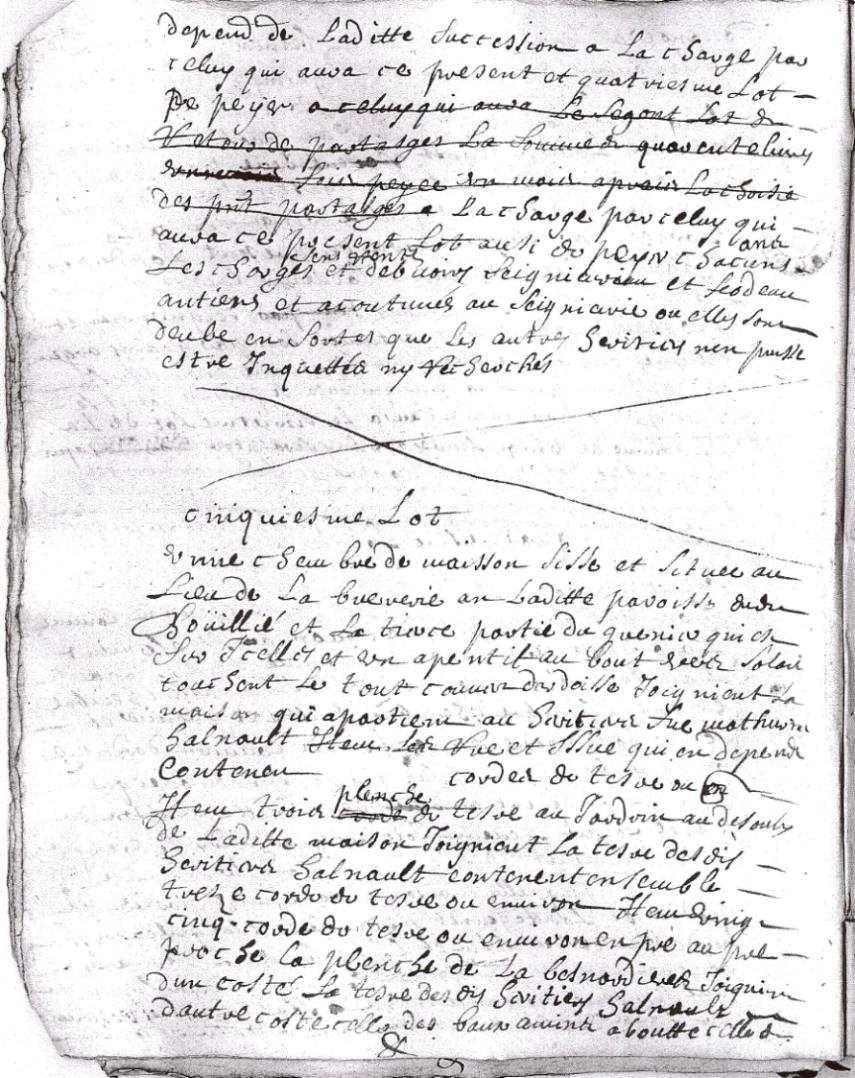 depend de Laditte succession a La charge par
celuy qui aura ce present et quatriesme Lot
De peyer a celuy qui aura Le segont Lot de
Retour de partasges La somme de quarente livres
Leur peyee un mois apreis La choisie
des pnt partasges a La charge par celuy qui
aura ce present Lot ausi de peyer chacuns ans
Les charges sens rente et debvoirs seigniariau et feodeau
antiens et acoutumes au seigniarie ou elles sont
deube en sortes que Les autres heritiers nen puisse
estre Inquettés ny Recherchés
cinquiesme Lot
unne chembre de maisson sisse et situee au
Lieu de La bruerie an Laditte paroisse dudit
houillié et La tierce partie du grenier qui est
sur Icelles et un apentil au bout vers soleil
couchent Le tout couver dardoisse Joignient La
maison qui apartient au heritiers fue mathurin
halnault Item Les Rue et Issue qui en depend
contenen cordes de terre ou en
Item trois plenche corde de terre au Jardrin au desoubs
de Laditte maison Joignient La terre desdis
heritiers halnault contenent ensemble
treze corde de terre ou environ Item vingt
cinq corde de terre ou environ en pré au pré
proche La plenche de La besnardieres Joignien
dun costé La terre desdis heritiers halnault
dautre costé celle des baux aboutte celle d
&